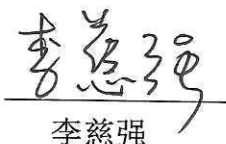 李慈强
李慈强